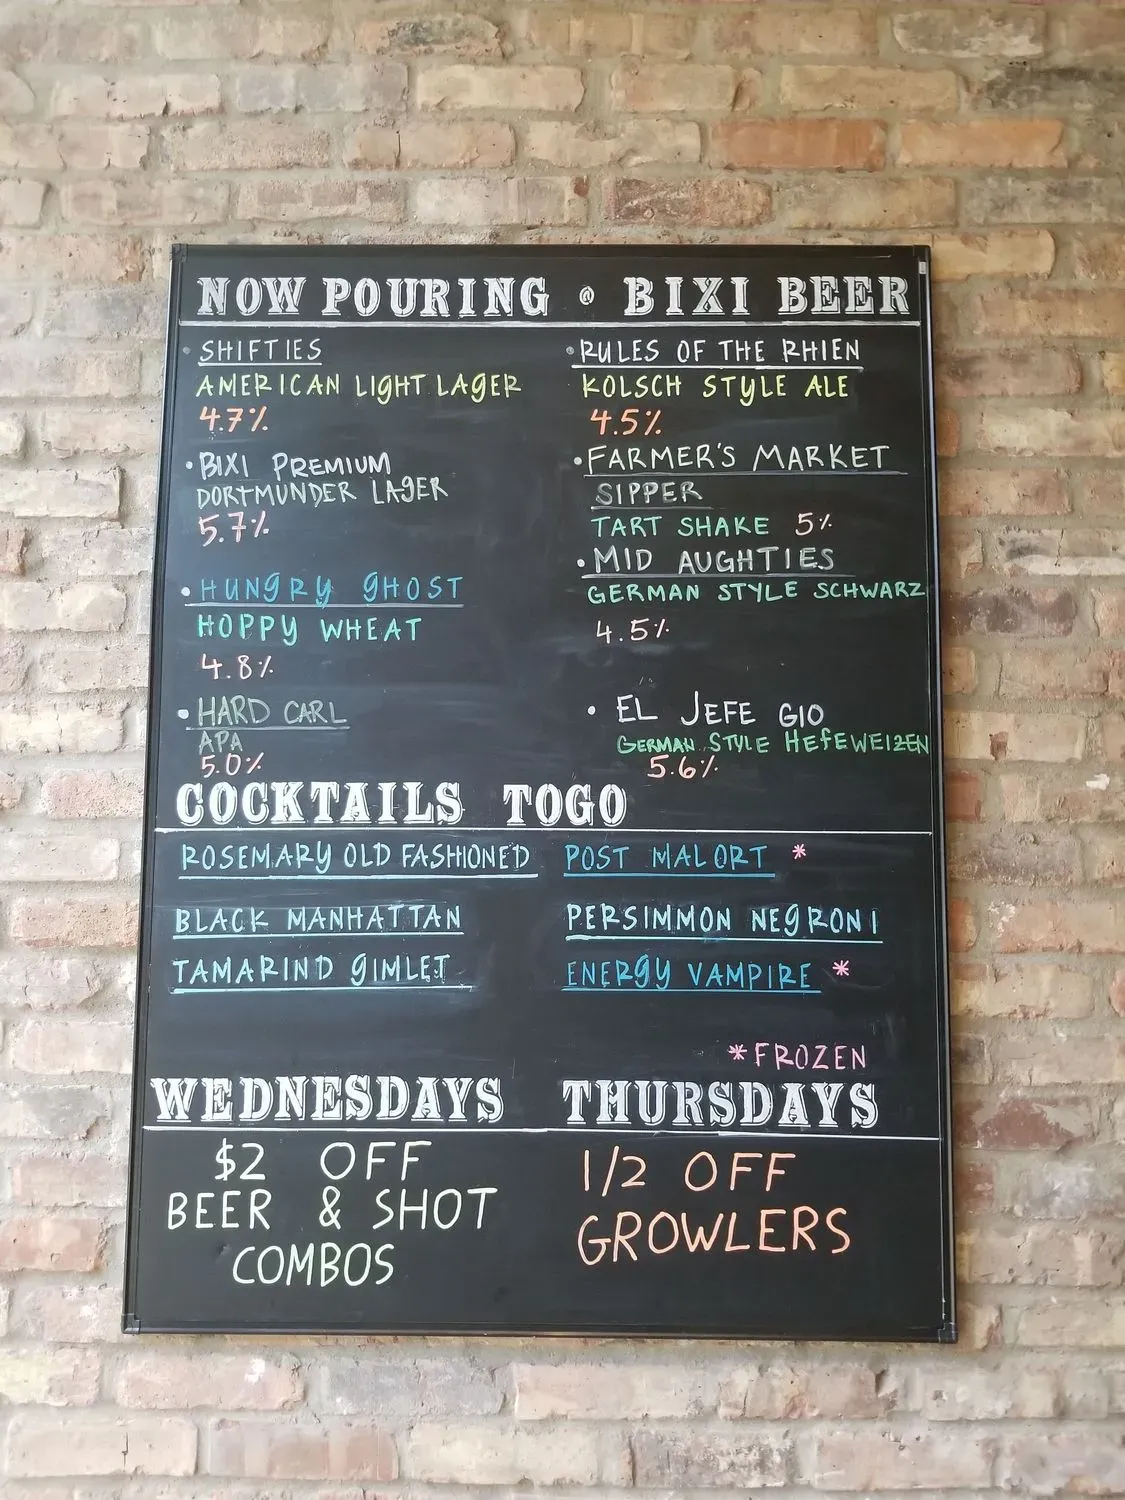 NOW POURING @ BIXI BEER
• SHIFTIES
AMERICAN LIGHT LAGER
4.7%
• BIXI PREMIUM
DORTMUNDER LAGER
5.7%
• HUNGRY GHOST
HOPPY WHEAT
4.8%
• HARD CARL
APA
5.0%
• RULES OF THE RHIEN
KOLSCH STYLE ALE
4.5%
• FARMER'S MARKET
SIPPER
TART SHAKE 5%
• MID AUGHTIES
GERMAN STYLE SCHWARZ
4.5%
• EL JEFE GIO
GERMAN STYLE HEFEWEIZEN
5.6%
COCKTAILS TOGO
ROSEMARY OLD FASHIONED
BLACK MANHATTAN
TAMARIND GIMLET
POST MALORT *
PERSIMMON NEGRONI
ENERGY VAMPIRE *
* FROZEN
WEDNESDAYS
$2 OFF
BEER & SHOT
COMBOS
THURSDAYS
1/2 OFF
GROWLERS